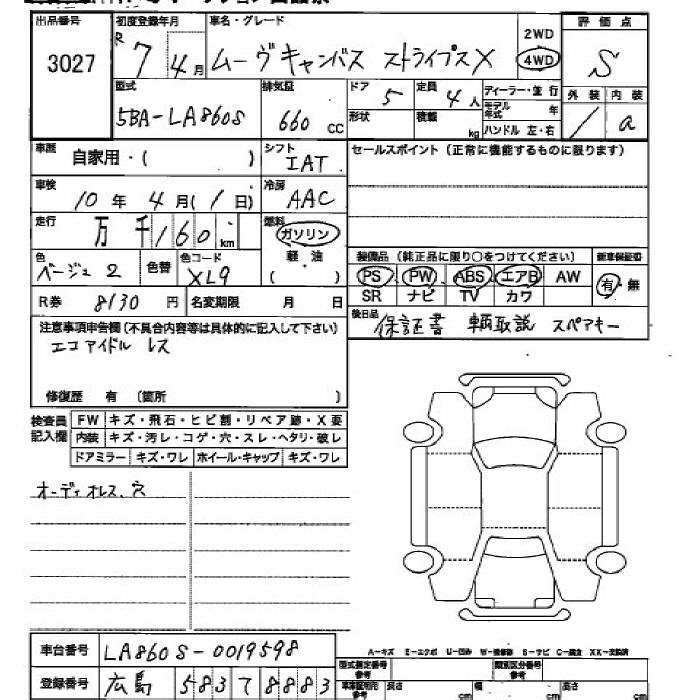 出品番号 初度登録年月 車名・グレード 評価点
3027 R 7年4月 ムーヴキャンバス ストライプスX 2WD 4WD S
型式 排気量 ドア 定員 ディーラー・並行 外装 内装
5BA-LA860S 660 cc 5 4人 モデル年式 年 / a
形状 積載 kg ハンドル 左・右
車歴 自家用・( ) シフト IAT セールスポイント(正常に機能するものに限ります)
車検 10年4月(1日) 冷房 AAC
走行 万千160km 燃料 ガソリン
軽油
( )
色 ベージュ2 色替 色コード XL9
装備品(純正品に限り○をつけてください) 新車保証書
PS PW ABS エアB AW 有・無
SR ナビ TV カワ
R券 8130円 名変期限 月 日
後日品 保証書 車輌取説 スペアキー
注意事項申告欄(不具合内容等は具体的に記入して下さい)
エコアイドルレス
修復歴 有 (箇所 )
検査員記入欄 FW キズ・飛石・ヒビ割・リペア跡・X要
内装 キズ・汚レ・コゲ・穴・スレ・ヘタリ・破レ
ドアミラー キズ・ワレ ホイール・キャップ キズ・ワレ
オーディオレス、穴
車台番号 LA860S-0019598
登録番号 広島 583 7 8883
A-キズ E-エクボ U-凹み W-補修跡 S-サビ C-腐食 XX-交換済
型式指定番号 参考 類別区分番号 参考
車庫証明用 参考 長さ cm 幅 cm 高さ cm